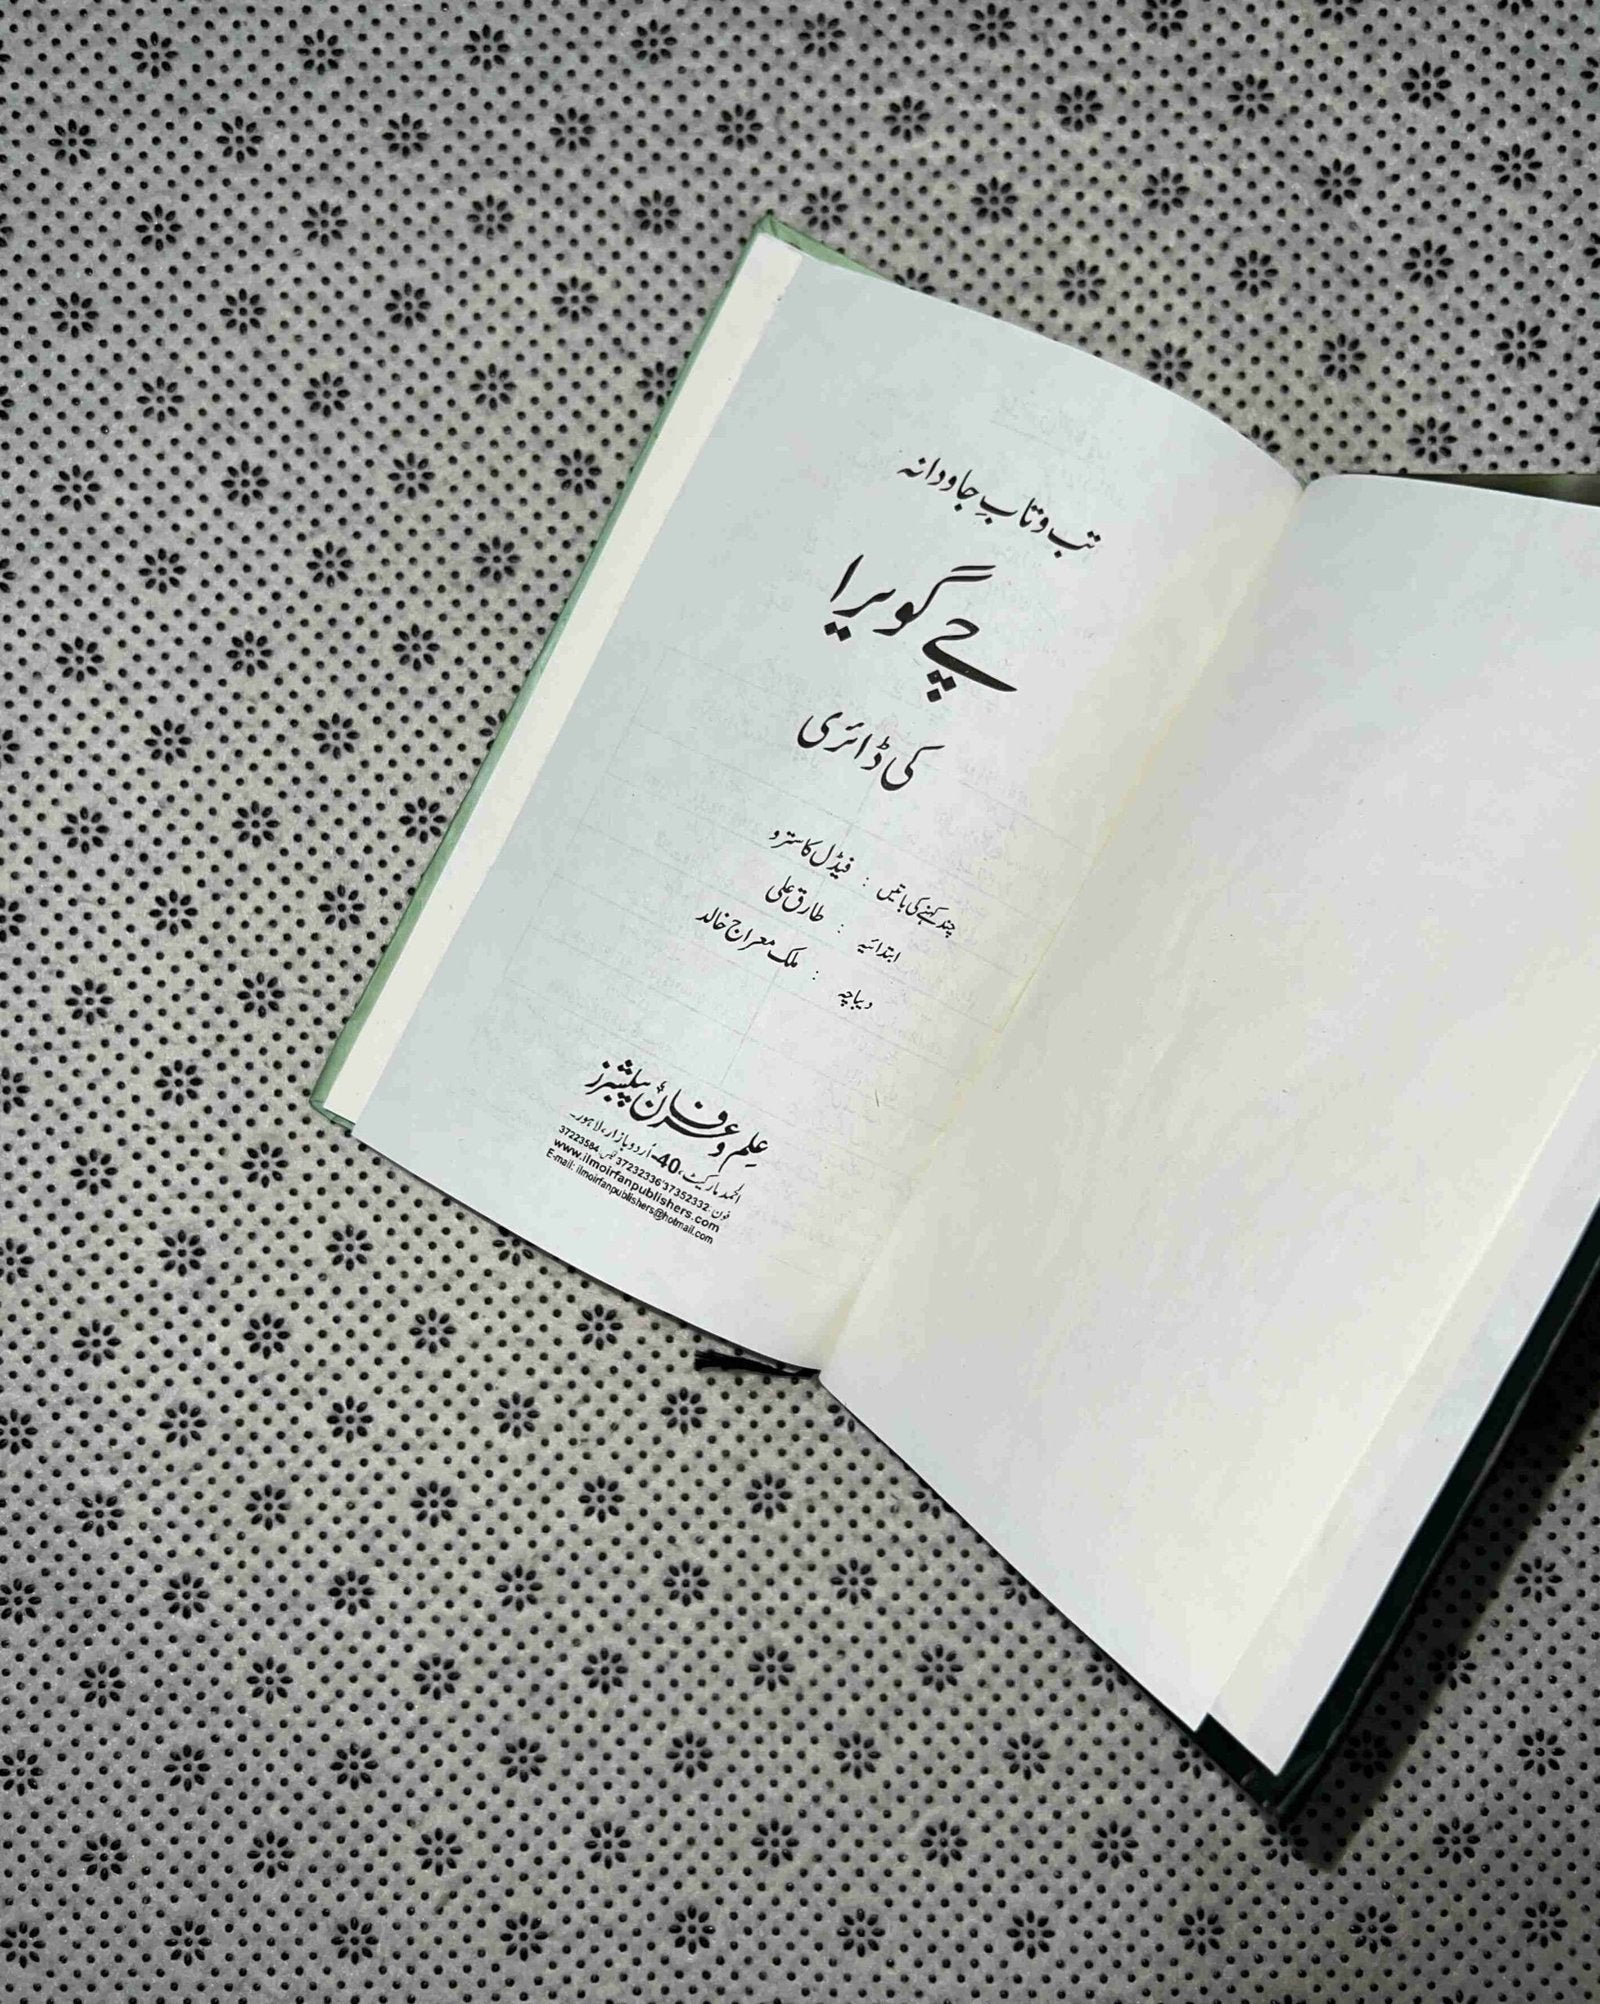 تب و تابِ جاودانہ
چے گویرا
کی ڈائری
چند کہنے کی باتیں : فیڈل کاسترو
ابتدائیہ : طارق علی
دیباچہ : ملک معراج خالد
علم و عرفان پبلشرز
الحمد مارکیٹ، 40-اُردو بازار، لاہور۔
فون: 37352332'37232336 فیکس 37223584
www.ilmoirfanpublishers.com
E-mail: ilmoirfanpublishers@hotmail.com